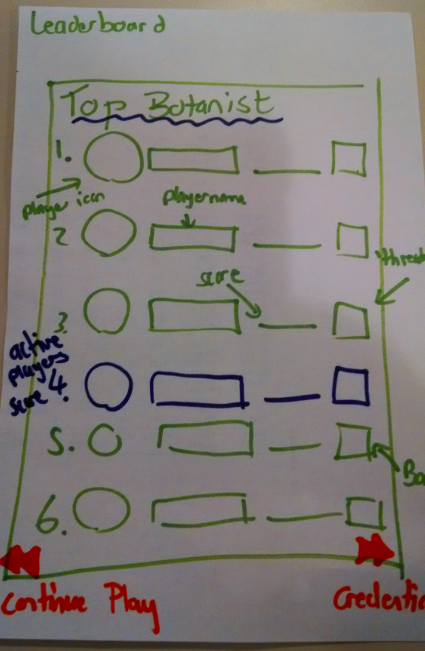 Leaderboard
Top Botanist
1.
player icon
playername
2
score
3.
active
players
score 4.
5.
6.
Continue Play